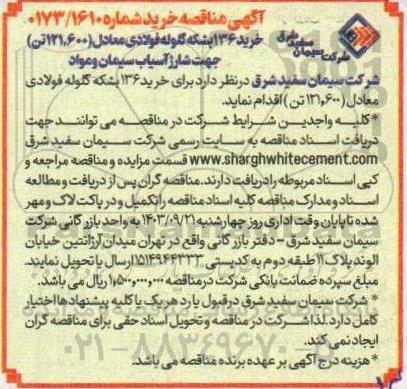 آگهی مناقصه خرید شماره ۰۱۷۳/۱۶۱۰
خرید ۱۳۶ بشکه گلوله فولادی معادل (۱۲۱,۶۰۰ تن)
جهت شارژ آسیاب سیمان و مواد
شرکت
سیمان سفید شرق
شرکت سیمان سفید شرق در نظر دارد برای خرید ۱۳۶ بشکه گلوله فولادی
معادل (۱۲۱,۶۰۰ تن) اقدام نماید.
*کلیه واجدین شرایط شرکت در مناقصه می توانند جهت
دریافت اسناد مناقصه به سایت رسمی شرکت سیمان سفید شرق
www.sharghwhitecement.com قسمت مزایده و مناقصه مراجعه و
کپی اسناد مربوطه را دریافت دارند. مناقصه گران پس از دریافت و مطالعه
اسناد و مدارک مناقصه کلیه اسناد مناقصه را تکمیل و در پاکت لاک و مهر
شده تا پایان وقت اداری روز چهارشنبه ۱۴۰۳/۰۹/۲۱ به واحد بازرگانی شرکت
سیمان سفید شرق - دفتر بازرگانی واقع در تهران میدان آرژانتین خیابان
الوند پلاک ۱۱ طبقه دوم به کدپستی ۱۵۱۴۹۴۴۳۳۳ ارسال یا تحویل نمایند.
مبلغ سپرده ضمانت بانکی شرکت در مناقصه ۱,۵۰۰,۰۰۰,۰۰۰ ریال می باشد.
* شرکت سیمان سفید شرق در قبول یا رد هر یک یا کلیه پیشنهادها اختیار
کامل دارد. لذا شرکت در مناقصه و تحویل اسناد حقی برای مناقصه گران
ایجاد نمی کند.
* هزینه درج آگهی بر عهده برنده مناقصه می باشد.
۰۲۱-۸۸۳۴۹۶۷۰